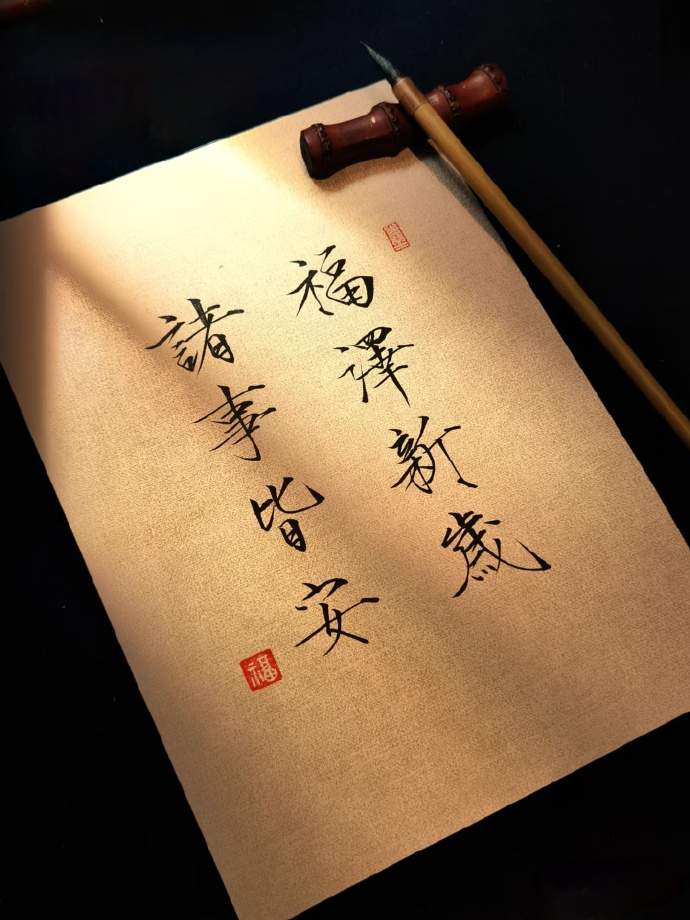 福澤新歲
諸事皆安
福